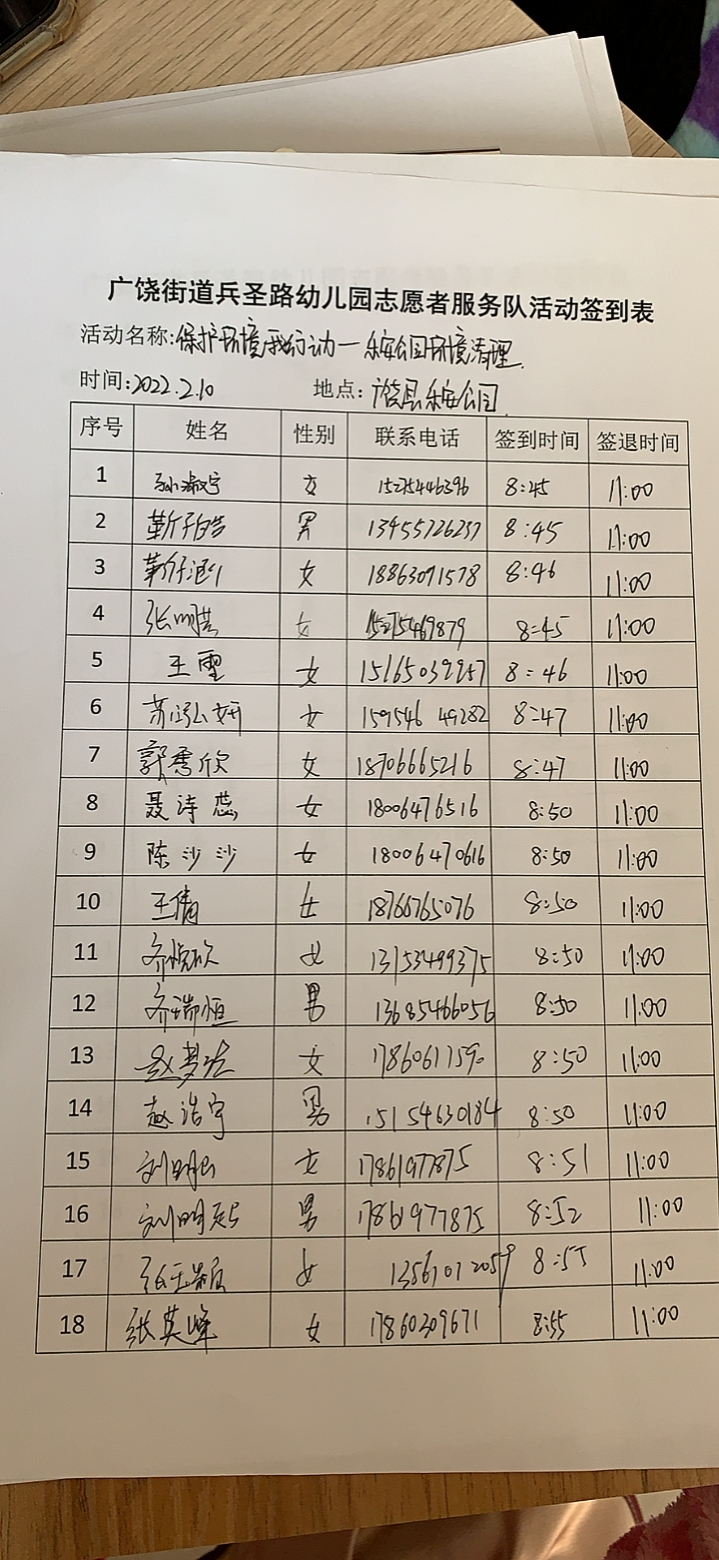 广饶街道兵圣路幼儿园志愿者服务队活动签到表
活动名称:保护环境我行动一乐安公园环境清理.
时间:2022.2.10 地点:广饶县乐安公园
序号 姓名 性别 联系电话 签到时间 签退时间
1 孙淑宇 女 15275446396 8:45 11:00
2 男 13455726257 8:45 11:00
3 女 18863091578 8:46 11:00
4 女 15275469879 8:45 11:00
5 王雪 女 15165039957 8:46 11:00
6 苏泓妍 女 159546 49282 8:47 11:00
7 郭秀欣 女 18706665216 8:47 11:00
8 聂诗蕊 女 18006476516 8:50 11:00
9 陈沙沙 女 18006470616 8:50 11:00
10 王倩 女 18766765076 8:50 11:00
11 齐悦欣 女 13153499375 8:50 11:00
12 齐瑞恒 男 13685466056 8:50 11:00
13 女 8:50 11:00
14 赵浩宇 男 15154630184 8:50 11:00
15 女 17861977875 8:51 11:00
16 男 17861977875 8:52 11:00
17 女 13561012059 8:55 11:00
18 张英峰 女 17860309671 8:55 11:00